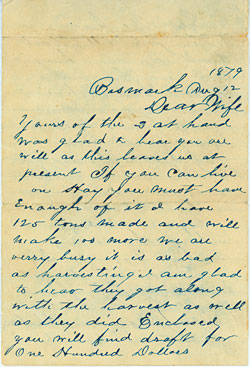 1879
Bismarck Aug 12
Dear Wife
Yours of the 2 at hand
was glad to hear you are
well as this leaves us at
present If you can live
on Hay you must have
Enough of it I have
125 tons made and will
make 100 more we are
verry busy it is as bad
as harvesting I am glad
to hear they got along
with the harvest as well
as they did Enclosed
you will find draft for
One Hundred Dollars